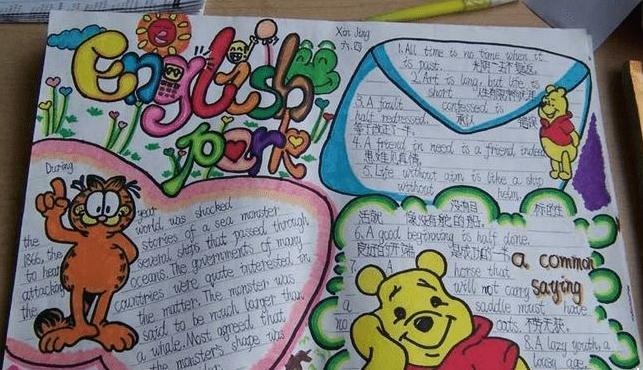 English
park
Xin Jing
六.四
During
the year
1866, the world was shocked
to hear stories of a sea monster
attacking several ships that passed through
the oceans. The governments of many
countries were quite interested in
the matter. The monster was
said to be much larger than
a whale. Most agreed that
the monster's shape was
1. All time is no time when it
is past.
2. Art is long, but life is
short
3. A fault confessed is
half redressed. 承认
等于改正了一半.
4. A friend in need is a friend indeed
患难见真情.
5. Life without aim is like a ship
without helm.
活就 像没有舵的船.
6. A good beginning is half done.
良好的开端 是成功的一半
a common
saying
7. A horse that
will not carry
a saddle must have
no oats.
8. A lazy youth, a
lousy age.